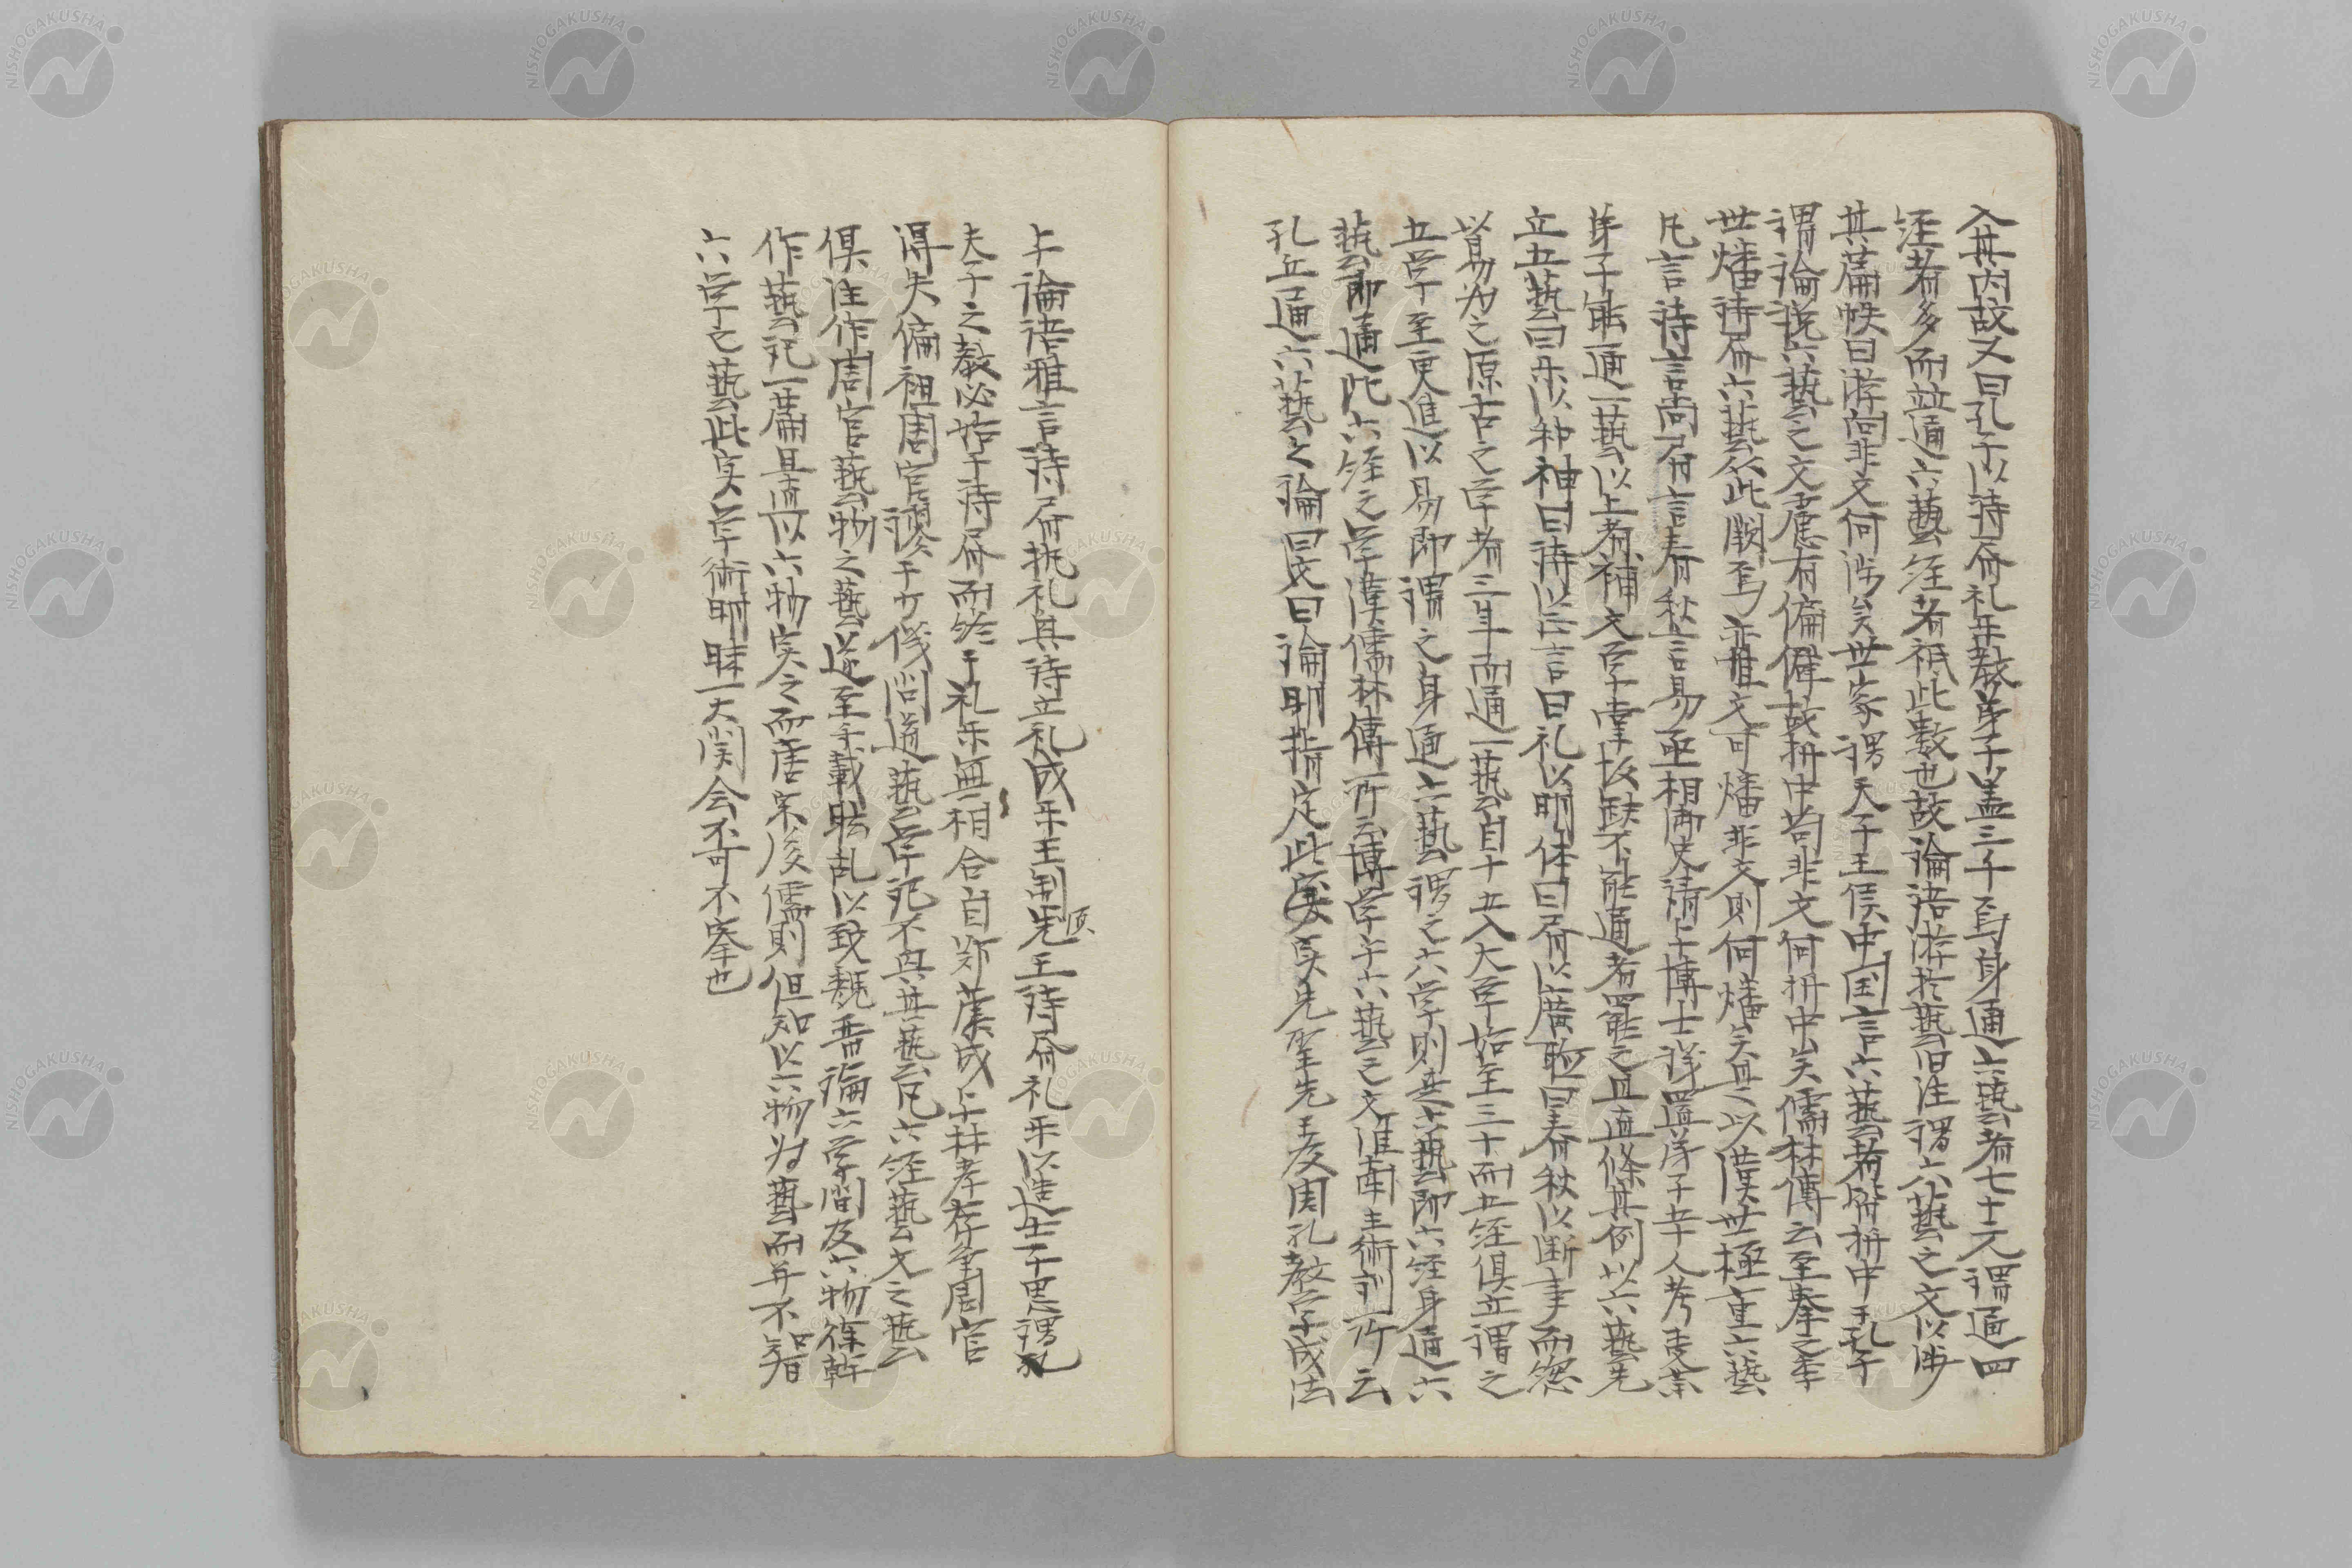 入其内故又曰孔子以詩斉礼乐教弟子盖三千焉身通六藝者七十二元謂通四
経者多而並通六藝経者祇此数也故論語游於藝旧注謂六藝之文以渉
其篇帙曰游向非文何渉矣世家謂天子王侯中国言六藝者折中于孔子
謂論説六藝之文慮有偏僻故折中苟非文何折中矣儒林傳云至秦之季
世燔詩斉六藝從此闕焉亦惟文可燔非文則何燔矣且以漢世極重六藝
凡言詩言尚斉言春秋言易丞相御史請与博士議置弟子率人考吏業
弟子能通一藝以上者補文学掌故缺不能通者罷之且直條其例以六藝先
立五藝曰乐以和神曰詩以言曰礼以明体曰斉以廣聴曰春秋以断事而総
以易为之原古之学者三年而通一藝自十五入大学始至三十而五経倶立謂之
五学至更進以易即謂之身通六藝謂之六学則是六藝即六経身通六
藝即通此六経之学漢儒林傳所云博学于六藝之文淮南主術訓所云
孔丘通六藝之論曰曰論明指定此寔先聖先王周孔教学成法
上論語雅言詩斉执礼其詩立礼成乐王制先王詩斉礼乐以造士子思謂
夫子之教必始于詩斉而終于礼乐無相合自郑成上林孝存争周官
得失偏祖周官謬于少儀問道藝学死不与其藝凡六経藝文之藝
倶注作周官藝物之藝遂至千載眩乱以致魏晋論六学間及六物徐幹
作藝紀一篇是以六物寔之而唐宋後儒則但知以六物为藝而并不知
六学之藝此实学術明昧一大関会不可不察也